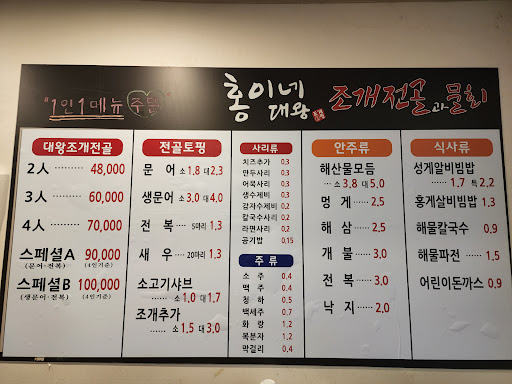 "1인 1메뉴 주문"
홍이네 대왕 조개전골과 물회
대왕조개전골
2人 ········ 48,000
3人 ······ 60,000
4人 ······ 70,000
스페셜A 90,000
(문어·전복) (4인기준)
스페셜B 100,000
(생문어·전복) (4인기준)
전골토핑
문 어 소 1,8 대 2,3
생문어 소 3,0 대 4,0
전 복 5마리 1,3
새 우 20마리 1,3
소고기샤브
소 1,0 대 1,7
조개추가
소 1,5 대 3,0
사리류
치즈추가 0,3
만두사리 0,3
어묵사리 0,3
생수제비 0,2
감자수제비 0,2
칼국수사리 0,2
라면사리 0,2
공기밥 0,15
주 류
소 주 0,4
맥 주 0,4
청 하 0,5
백세주 0,7
화 랑 1,2
복분자 1,2
막걸리 0,4
안주류
해산물모듬
소 3,8 대 5,0
멍 게 ······ 2,5
해 삼 ······ 2,5
개 불 ······ 3,0
전 복 ······ 3,0
낙 지 ······ 2,0
식사류
성게알비빔밥
····· 1,7 특 2,2
홍게살비빔밥 1,3
해물칼국수 0,9
해물파전 ····· 1,5
어린이돈까스 0,9